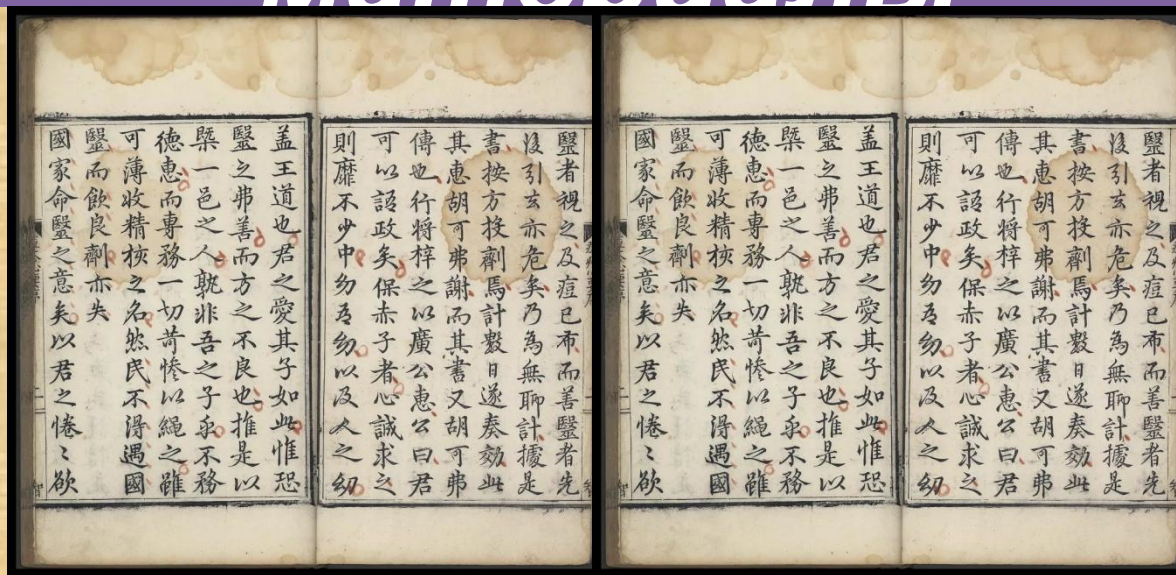 醫者視之及痘已布而善醫者先
後引去亦危矣乃為無聊計據是
書按方投劑焉計數日遂奏効此
其惠胡可弗謝而其書又胡可弗
傳也行將梓之以廣公惠公曰君
可以語政矣保赤子者心誠求之
則靡不少中幼吾幼以及人之幼
盖王道也君之愛其子如此惟恐
醫之弗善而方之不良也推是以
槩一邑之人孰非吾之子乎不務
德惠而專務一切苛慘以繩之雖
可薄收精核之名然民不得遇國
醫而飲良劑亦失
國家命醫之意矣以君之惓〻欲
醫者視之及痘已布而善醫者先
後引去亦危矣乃為無聊計據是
書按方投劑焉計數日遂奏効此
其惠胡可弗謝而其書又胡可弗
傳也行將梓之以廣公惠公曰君
可以語政矣保赤子者心誠求之
則靡不少中幼吾幼以及人之幼
盖王道也君之愛其子如此惟恐
醫之弗善而方之不良也推是以
槩一邑之人孰非吾之子乎不務
德惠而專務一切苛慘以繩之雖
可薄收精核之名然民不得遇國
醫而飲良劑亦失
國家命醫之意矣以君之惓〻欲